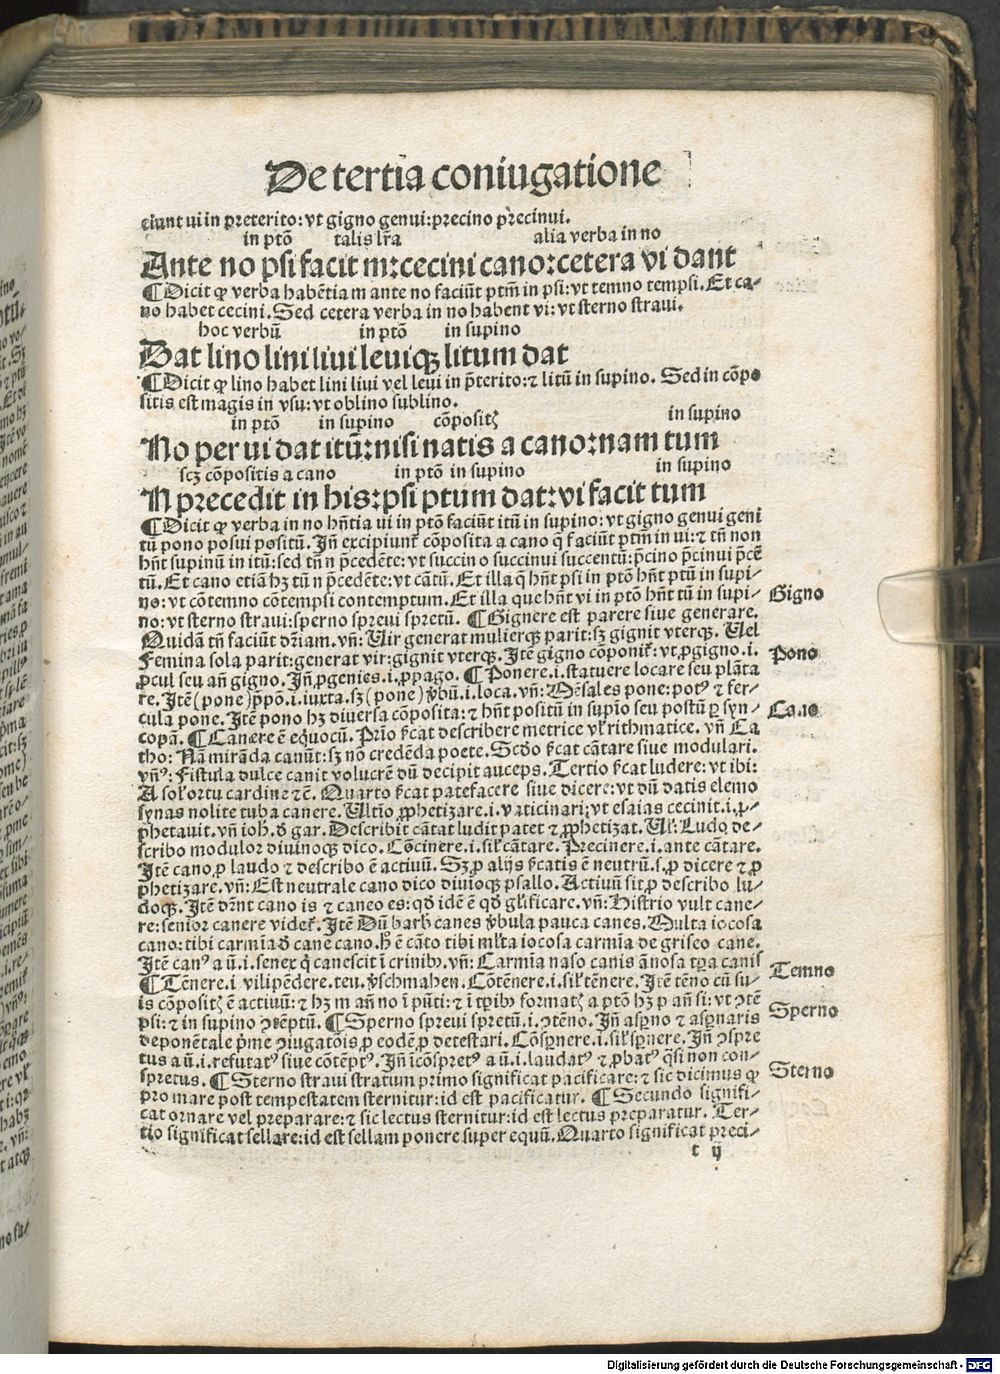 De tertia coniugatione
ciunt ui in preterito: vt gigno genui: precino precinui.
in ptō talis lr̄a alia verba in no
Ante no psi facit m: cecini cano: cetera vi dant
¶ Dicit ꝙ verba habētia m ante no faciūt ptm̄ in psi: vt temno tempsi. Et ca⸗
no habet cecini. Sed cetera verba in no habent vi: vt sterno straui.
hoc verbū in ptō in supino
Dat lino lini liui leuiqꝫ litum dat
¶ Dicit ꝙ lino habet lini liui vel leui in p̄terito: ⁊ litū in supino. Sed in cōpo
sitis est magis in vsu: vt oblino sublino.
in ptō in supino cōpositꝭ in supino
No per ui dat itū: nisi natis a cano: nam tum
scꝫ cōpositis a cano in ptō in supino in supino
N precedit in his: psi ptum dat: vi facit tum
¶ Dicit ꝙ verba in no hn̄tia ui in ptō faciūt itū in supino: vt gigno genui geni
tū pono posui positū. Jn̄ excipiunt᷑ cōposita a cano q̄ faciūt ptm̄ in ui: ⁊ tn̄ non
hn̄t supinū in itū: sed tn̄ n p̄cedēte: vt succino succinui succentū: p̄cino p̄cinui p̄cē
tū. Et cano etiā hꝫ tū n p̄cedēte: vt cātū. Et illa q̄ hn̄t psi in ptō hn̄t ptū in supi⸗
no: vt cōtemno cōtempsi contemptum. Et illa que hn̄t vi in ptō hn̄t tū in supi⸗
no: vt sterno straui: sperno spreui spretū. ¶ Gignere est parere siue generare.
Gigno
Quidā tn̄ faciūt dr̄iam. vn̄: Uir generat mulierqꝫ parit: sꝫ gignit vterqꝫ. Uel
Femina sola parit: generat vir: gignit vterqꝫ. Jtē gigno cōponit᷑: vt ꝓgigno. i.
Pono
ꝓcul seu an̄ gigno. Jn̄ ꝓgenies. i. ꝓpago. ¶ Ponere. i. statuere locare seu plāta
re. Jtē (pone) p̄pō. i. iuxta. sꝫ (pone) v̄bū. i. loca. vn̄: Mēsales pone: potꝰ ⁊ fer⸗
cula pone. Jtē pono hꝫ diuersa cōposita: ⁊ hn̄t positū in supio seu postū ꝑ syn⸗
Cano
copā. ¶ Canere ē equocū. Prio s̄cat describere metrice vl̓ rithmatice. vn̄ Ca
tho: Nā mirāda canūt: sꝫ nō credēda poete. Scd̄o s̄cat cātare siue modulari.
vn̄ꝰ: Fistula dulce canit volucrē dū decipit auceps. Tertio s̄cat ludere: vt ibi:
A sol᷑ ortu cardine ⁊c̄. Quarto s̄cat patefacere siue dicere: vt dū datis elemo
synas nolite tuba canere. Ultīo ꝓphetizare. i. vaticinari: vt esaias cecinit. i. ꝓ⸗
phetauit. vn̄ ioh. d̓ gar. Describit cātat ludit patet ⁊ ꝓphetizat. Ul̓: Ludo de⸗
scribo modulor diuinoqꝫ dico. Cōcinere. i. sil᷑ cātare. Precinere. i. ante cātare.
Jtē cano ꝓ laudo ⁊ describo ē actiuū. Sꝫ ꝓ alijs s̄catis ē neutrū. s. ꝓ dicere ⁊ ꝓ
phetizare. vn̄: Est neutrale cano dico diuioqꝫ psallo. Actiuū sit ꝓ describo lu⸗
doqꝫ. Jtē dr̄nt cano is ⁊ caneo es: qd̓ idē ē qd̓ gl̓ificare. vn̄: Histrio vult cane⸗
re: senior canere videt᷑. Jtē Dū barb̓ canes v̄bula pauca canes. Multa iocosa
cano: tibi carmīa d̓ cane cano. h̓ ē cāto tibi ml̓ta iocosa carmīa de griseo cane.
Jtē canꝰ a ū. i. senex q̄ canescit ī crinibꝰ. vn̄: Carmīa naso canis
Temno
¶ Tēnere. i vilipēdere. teu. v̓schmahen. Cōtēnere. i. sil᷑ tēnere. Jtē tēno cū su⸗
is cōpositꝭ ē actiuū: ⁊ hꝫ m an̄ no ī pn̄ti: ⁊ ī tꝑibꝰ formatꝭ a ptō hꝫ p an̄ si: vt ꝯtē
Sperno
psi: ⁊ in supino ꝯtēptū. ¶ Sperno spreui spretū. i. ꝯtēno. Jn̄ aspno ⁊ aspnaris
deponētale p̄me ꝯiugatōis ꝓ eodē ꝓ detestari. Cōspnere. i. sil᷑ spnere. Jn̄ ꝯspre
tus a ū. i. refutatꝰ siue cōtēptꝰ. Jn̄ īcōspretꝰ a ū. i. laudatꝰ ⁊ ꝓbatꝰ q̄si non con⸗
Sterno
spretus. ¶ Sterno straui stratum primo significat pacificare: ⁊ sic dicimus ꝙ
pro mare post tempestatem sternitur: id est pacificatur. ¶ Secundo signifi⸗
cat ornare vel preparare: ⁊ sic lectus sternitur: id est lectus preparatur. Ter⸗
tio significat sellare: id est sellam ponere super equū. Quarto significat preci⸗
t ij
Digitalisierung gefördert durch die Deutsche Forschungsgemeinschaft - DFG